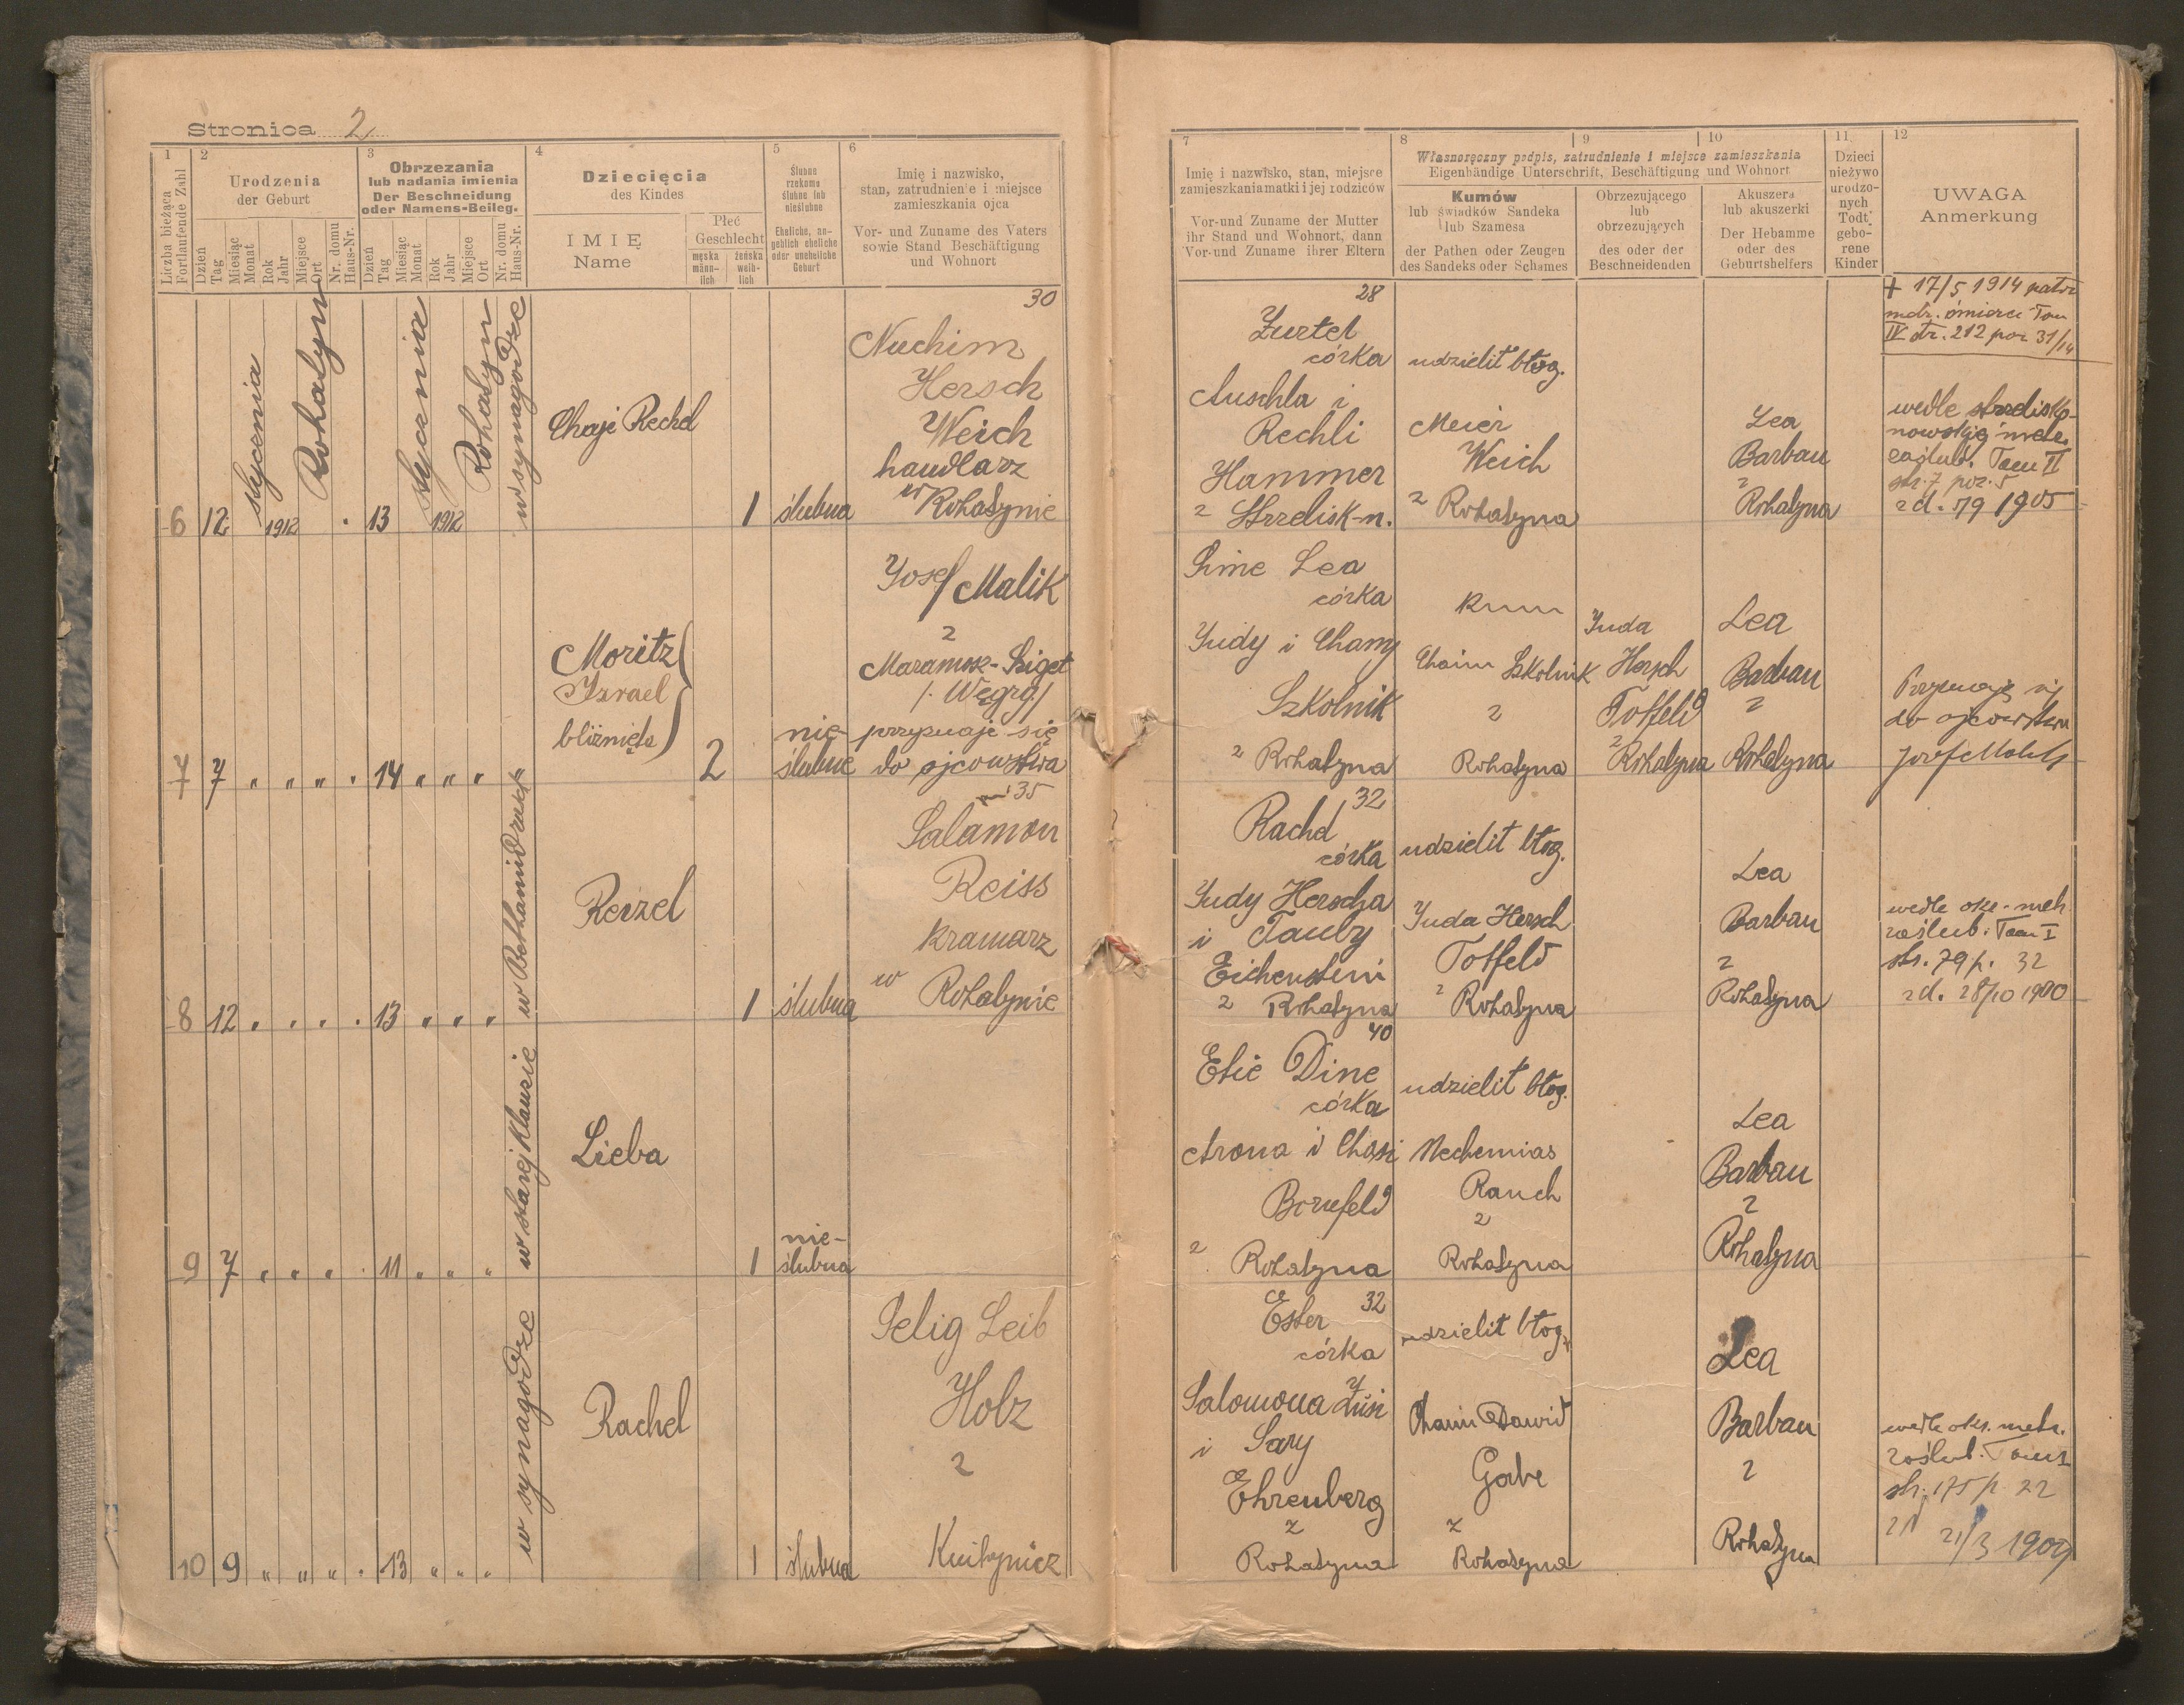 Stronica 2
1
Liczba bieżąca
Fortlaufende Zahl
2
Urodzenia
der Geburt
Dzień
Tag
Miesiąc
Monat
Rok
Jahr
Miejsce
Ort
Nr. domu
Haus-Nr.
3
Obrzezania
lub nadania imienia
Der Beschneidung
oder Namens-Beileg.
Dzień
Tag
Miesiąc
Monat
Rok
Jahr
Miejsce
Ort
Nr. domu
Haus-Nr.
4
Dziecięcia
des Kindes
IMIĘ
Name
Płeć
Geschlecht
męska
männ-
lich
żeńska
weib-
lich
5
Ślubne
rzekomo
ślubne lub
nieślubne
Eheliche, an-
geblich eheliche
oder uneheliche
Geburt
6
Imię i nazwisko,
stan, zatrudnienie i miejsce
zamieszkania ojca
Vor- und Zuname des Vaters
sowie Stand Beschäftigung
und Wohnort
7
Imię i nazwisko, stan, miejsce
zamieszkania matki i jej rodziców
Vor-und Zuname der Mutter
ihr Stand und Wohnort, dann
Vor-und Zuname ihrer Eltern
8
9
10
Własnoręczny podpis, zatrudnienie i miejsce zamieszkania
Eigenhändige Unterschrift, Beschäftigung und Wohnort
Kumów
lub świadków Sandeka
lub Szamesa
der Pathen oder Zeugen
des Sandeks oder Schames
Obrzezującego
lub
obrzezujących
des oder der
Beschneidenden
Akuszera
lub akuszerki
Der Hebamme
oder des
Geburtshelfers
11
Dzieci
nieżywo
urodzo-
nych
Todt
gebo-
rene
Kinder
12
UWAGA
Anmerkung
6 12 stycznia 1912 Rohatyn
13 stycznia 1912 Rohatyn
w synagodze
Chaje Rechel
1
ślubna
30
Nuchim
Hersch
Weich
handlarz
w Rohatynie
28
Zurtel
córka
Auschla i
Rechli
Hammer
z Strzelisk-n.
udzielił błog.
Meier
Weich
z Rohatyna
Lea
Barbau
z
Rohatyna
+ 17/5 1914
IV str. 212 poz 31/14
wedle strzelisko-
nowskiej metr.
Tom II
str. 7 poz. 5
1905
7 7 " " " " 14 " " "
Moritz
Izrael
bliźnięta
2
nie
ślubne
Josef Malik
z
Maramosz-Sziget
/: Węgry/
przyznaje się
do ojcowstwa
Lea
córka
Judy i Chany
Szkolnik
z Rohatyna
Kum
Chaim Szkolnik
z
Rohatyna
Juda
Hersch
Toffeld
z Rohatyna
Lea
Barbau
z
Rohatyna
Przyznaję się
do ojcowstwa
8 12 " " " " 13 " " "
w Bethamidrasch
Reizel
1
ślubna
35
Salamon
Reiss
kramarz
w Rohatynie
32
Rachel
córka
Judy Herscha
i Tauby
Eichenstein
z Rohatyna
udzielił błog.
Juda Hersch
Toffeld
z Rohatyna
Lea
Barbau
z
Rohatyna
wedle
zaślub. Tom I
str. 79 p. 32
z d. 28/10 1900
9 7 " " " " 11 " " "
w starej Klauzie
Lieba
1
nie-
ślubna
40
Etie Dine
córka
Arona i Chasi
Bornfeld
z Rohatyna
udzielił błog.
Nechemias
Rauch
z
Rohatyna
Lea
Barbau
z
Rohatyna
10 9 " " " " 13 " " "
w synagodze
Rachel
1
ślubna
Selig Leib
Holz
z
Knihynicz
32
Ester
córka
Salomona Züsi
i Sary
Ehrenberg
z
Rohatyna
udzielił błog.
Chaim Dawid
Gabe
z
Rohatyna
Lea
Barbau
z
Rohatyna
wedle okr. metr.
zaślub. Tom I
str. 175 p. 22
21/3 1909